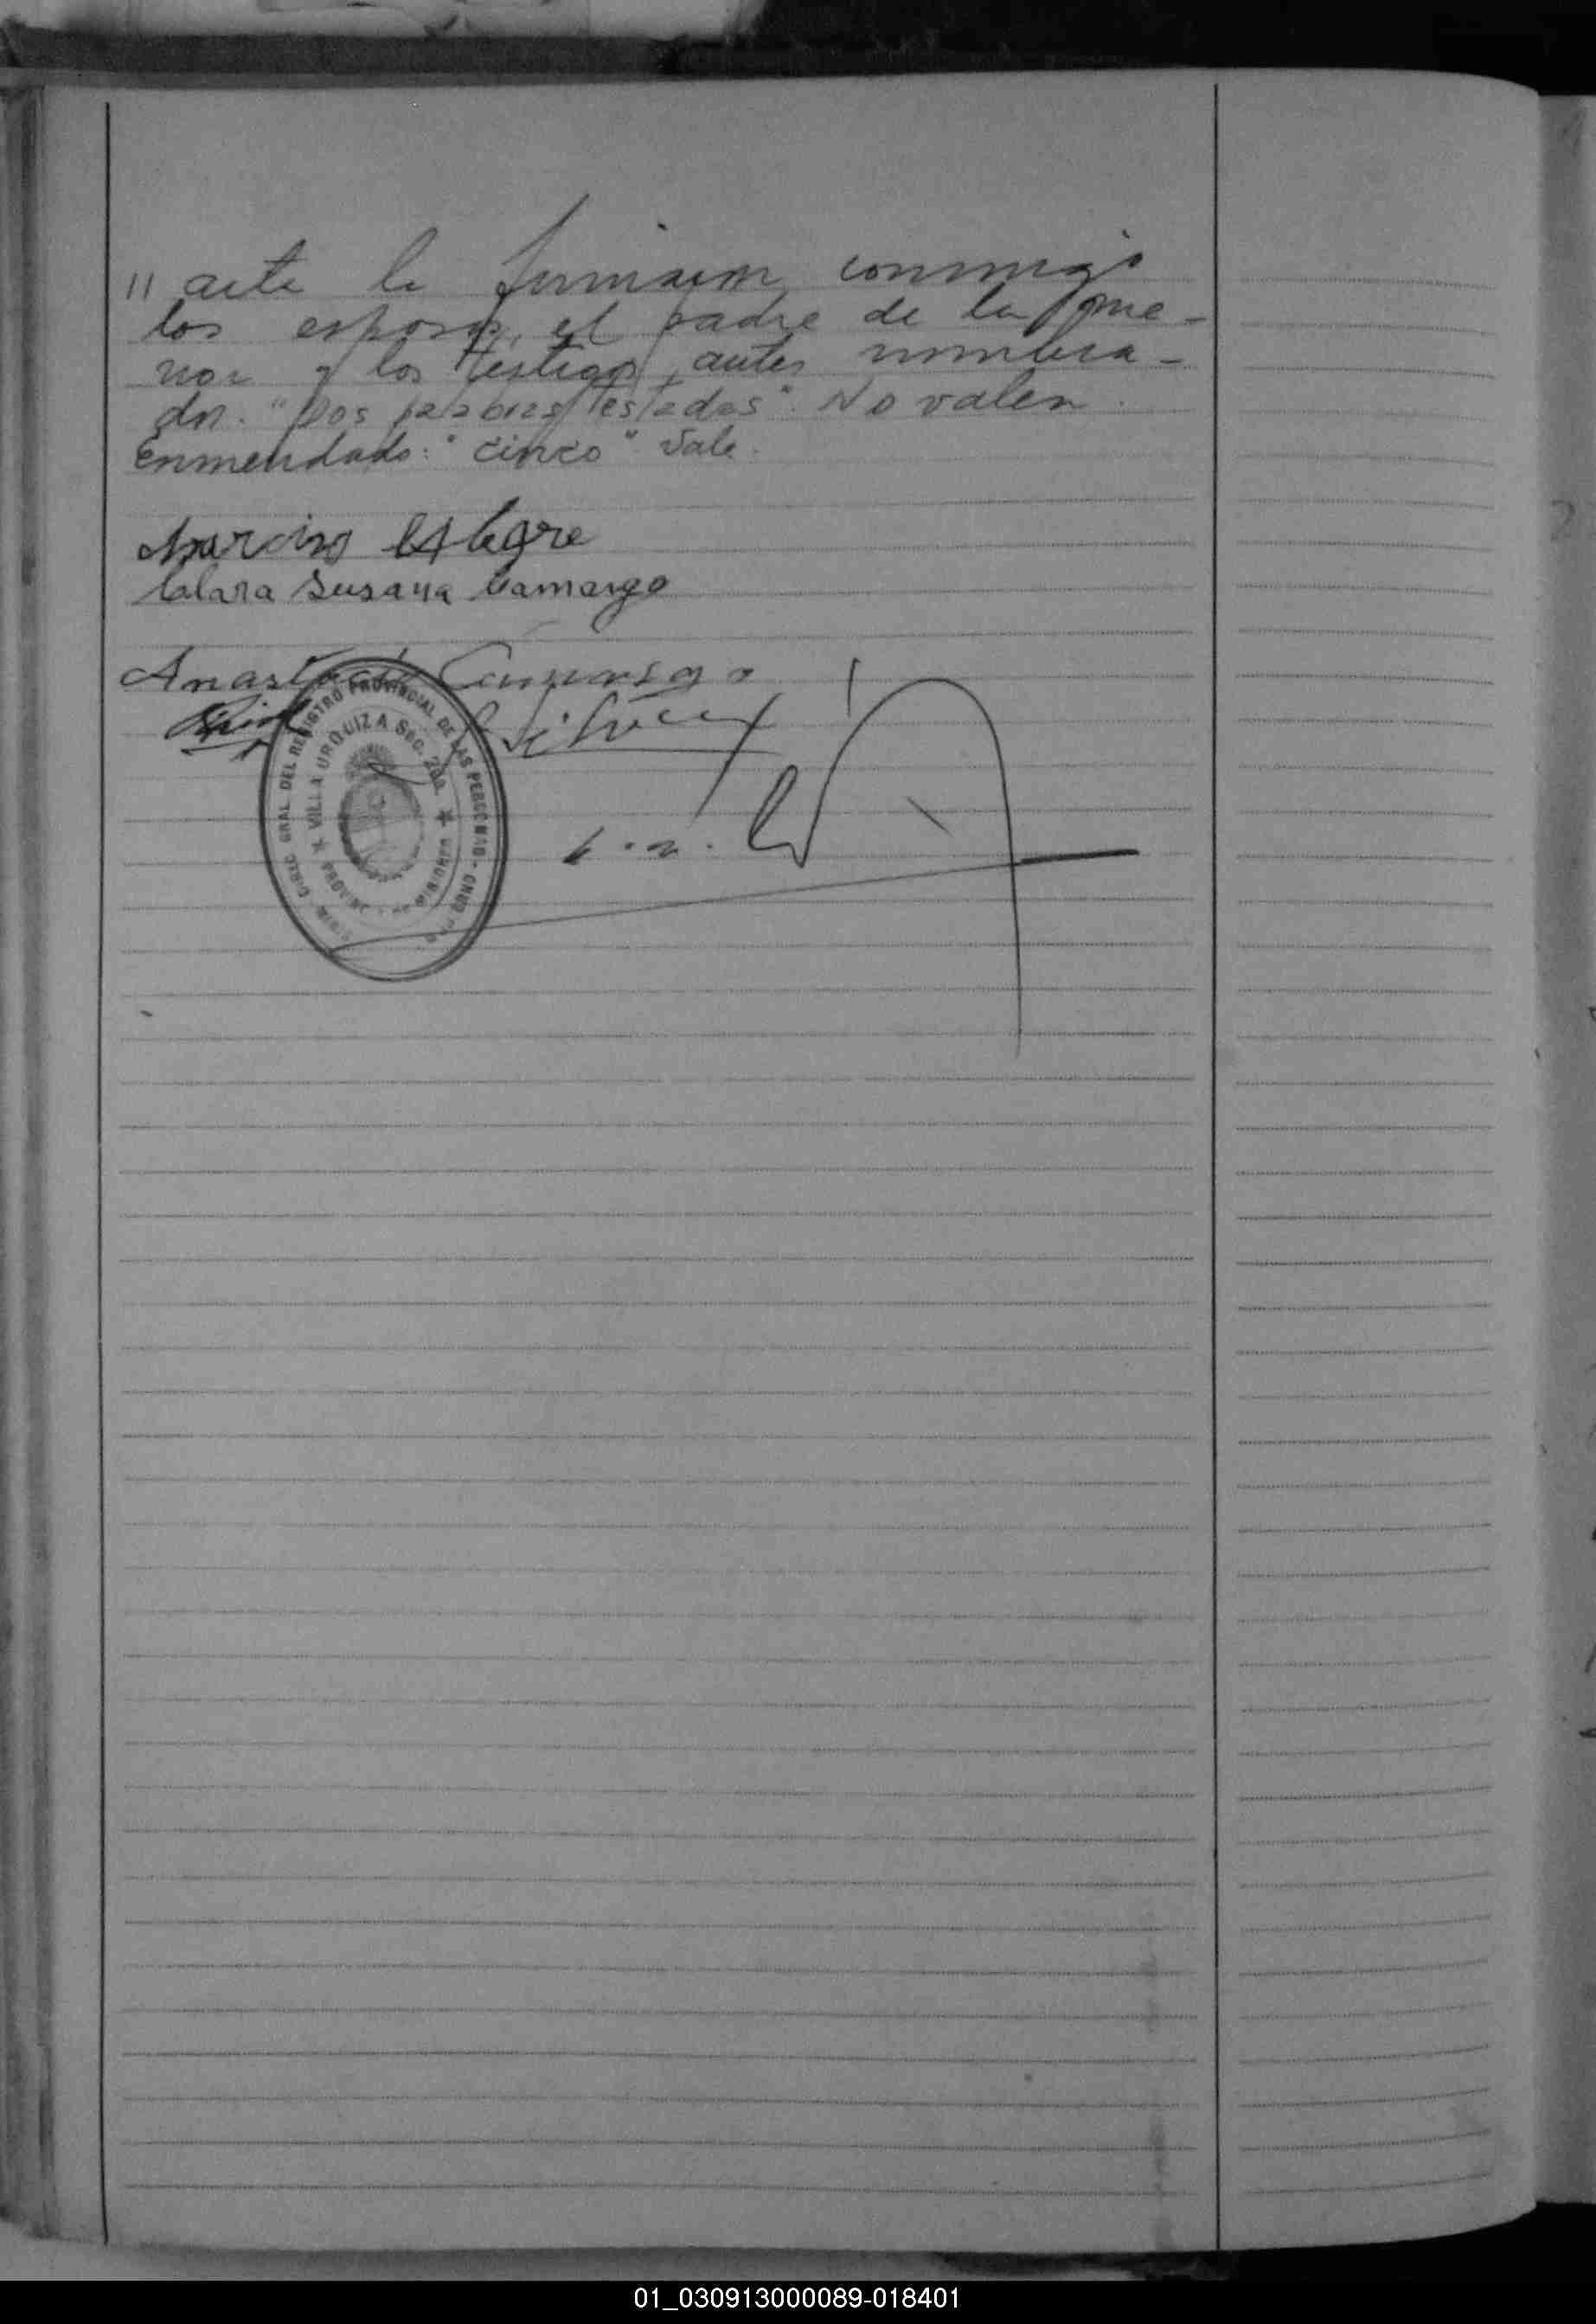 " acta la firmaron conmigo
los esposos, el padre de la me-
nor y los testigos antes nombra-
dos. "Dos palabras testadas". No valen.
Enmendado: "cinco". Vale.
Narciso Alegre
Clara Susana Camargo
Anastacio Camargo
Silvera
DIREC. GRAL. DEL REGISTRO PROVINCIAL DE LAS PERSONAS
VILLA URQUIZA Sec. 2da. ★ PROVINC. DE MISIONES ★
01_030913000089-018401